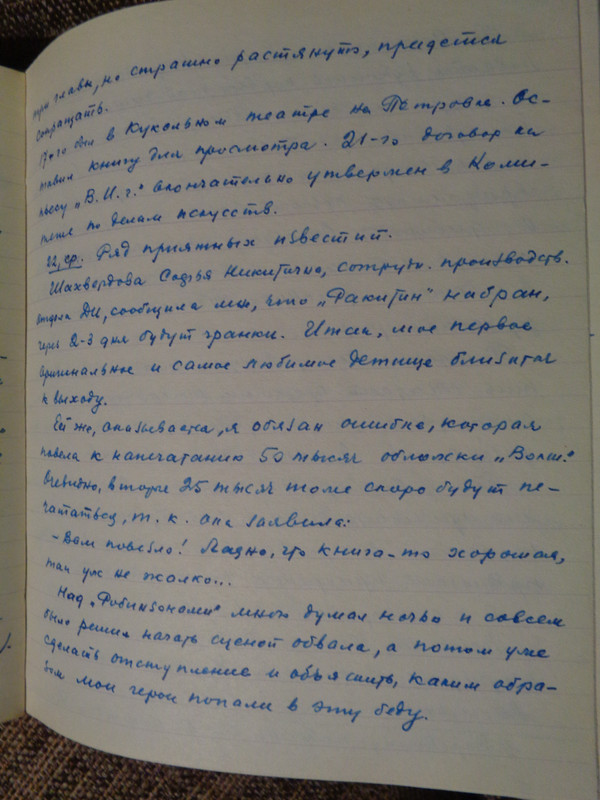 три главы, но страшно растянуто, придется
сокращать.
17-го был в Кукольном театре на Петровке. Ос-
тавил книгу для просмотра. 21-го договор на
пьесу „В. И. г.“ окончательно утвержен в Коми-
тете по делам искусств.
22, ср. Ряд приятных известий.
Шахвердова Софья Никитична, сотрудн. производств.
отдела ДИ, сообщила мне, что „Ракитин“ набран,
через 2-3 дня будут гранки. Итак, мое первое
оригинальное и самое любимое детище близится
к выходу.
Ей же, оказывается, я обязан ошибке, которая
повела к напечатанию 50 тысяч обложки „Волш.“
Очевидно, вторые 25 тысяч тоже скоро будут пе-
чататься, т. к. она заявила:
– Вам повезло! Ладно, что книга-то хорошая,
так уж не жалко...
Над „Робинзонами“ много думал ночью и совсем
было решил начать сценой обвала, а потом уже
сделать отступление и объяснить, каким обра-
зом мои герои попали в эту беду.